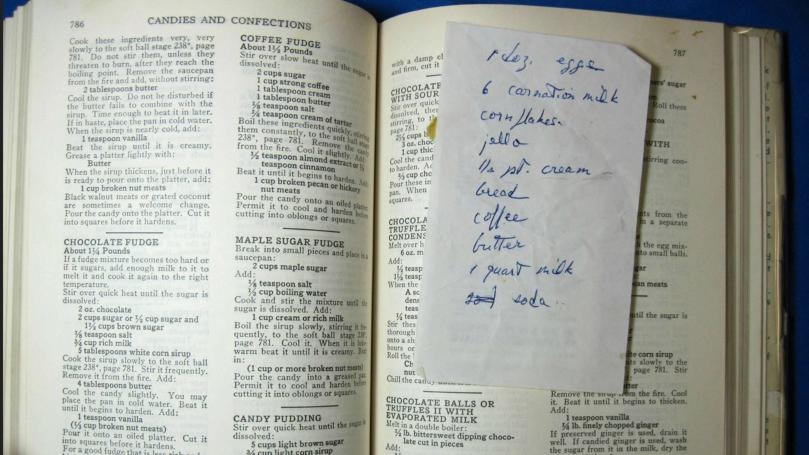 786
CANDIES AND CONFECTIONS
Cook these ingredients very, very
slowly to the soft ball stage 238°, page
781. Do not stir them, unless they
threaten to burn, after they reach the
boiling point. Remove the saucepan
from the fire and add, without stirring:
2 tablespoons butter
Cool the sirup. Do not be disturbed if
the butter fails to combine with the
sirup. Time enough to beat it in later.
If in haste, place the pan in cold water.
When the sirup is nearly cold, add:
1 teaspoon vanilla
Beat the sirup until it is creamy.
Grease a platter lightly with:
Butter
When the sirup thickens, just before it
is ready to pour onto the platter, add:
1 cup broken nut meats
Black walnut meats or grated coconut
are sometimes a welcome change.
Pour the candy onto the platter. Cut it
into squares before it hardens.
CHOCOLATE FUDGE
About 1¼ Pounds
If a fudge mixture becomes too hard or
if it sugars, add enough milk to it to
melt it and cook it again to the right
temperature.
Stir over quick heat until the sugar is
dissolved:
2 oz. chocolate
2 cups sugar or ½ cup sugar and
1½ cups brown sugar
⅛ teaspoon salt
¾ cup rich milk
5 tablespoons white corn sirup
Cook the sirup slowly to the soft ball
stage 238°, page 781. Stir it frequently.
Remove it from the fire. Add:
4 tablespoons butter
Cool the candy slightly. You may
place the pan in cold water. Beat it
until it begins to harden. Add:
1 teaspoon vanilla
(½ cup broken nut meats)
Pour it onto an oiled platter. Cut it
into squares before it hardens.
For a good fudge that is less rich
COFFEE FUDGE
About 1½ Pounds
Stir over slow heat until the sugar is
dissolved:
2 cups sugar
1 cup strong coffee
1 tablespoon cream
1 tablespoon butter
⅛ teaspoon salt
¼ teaspoon cream of tartar
Boil these ingredients quickly, stirring
them constantly, to the soft ball stage
238°, page 781. Remove the candy
from the fire. Cool it slightly. Add:
½ teaspoon almond extract or ½
teaspoon cinnamon
Beat it until it begins to harden. Add:
1 cup broken pecan or hickory
nut meats
Pour the candy onto an oiled platter.
Permit it to cool and harden before
cutting into oblongs or squares.
MAPLE SUGAR FUDGE
Break into small pieces and place in a
saucepan:
2 cups maple sugar
Add:
⅛ teaspoon salt
½ cup boiling water
Cook and stir the mixture until the
sugar is dissolved. Add:
1 cup cream or rich milk
Boil the sirup slowly, stirring it fre-
quently, to the soft ball stage 238°,
page 781. Cool it. When it is luke-
warm beat it until it is creamy. Beat
in:
(1 cup or more broken nut meats)
Pour the candy into a greased pan.
Permit it to cool and harden before
cutting it into oblongs or squares.
CANDY PUDDING
Stir over quick heat until the sugar is
dissolved:
5 cups light brown sugar
¾ cup light corn sirup
1 doz. eggs
6 carnation milk
cornflakes
jello
½ pt. cream
bread
coffee
butter
1 quart milk
soda
787
with a damp
and firm, cut it
CHOCOLATE
WITH SOUR
Stir over quick
dissolved
page 781:
CHOCOLA
TRUFFLES
CONDENS
Melt over h
6 oz.
Add:
Roll the
Chill the candy
CHOCOLATE BALLS OR
TRUFFLES II WITH
EVAPORATED MILK
Melt in a double boiler:
½ lb. bittersweet dipping choco-
late cut in pieces
sugar
Roll them
WITH
stirring con-
from the
a separate
the egg mix-
small balls.
until the sugar is
corn sirup
page 781. Stir
butter
Remove the sirup from the fire. Cool
it. Beat it until it begins to thicken.
Add:
1 teaspoon vanilla
¼ lb. finely chopped ginger
If preserved ginger is used, drain it
well. If candied ginger is used, wash
the sugar from it in the milk, dry the